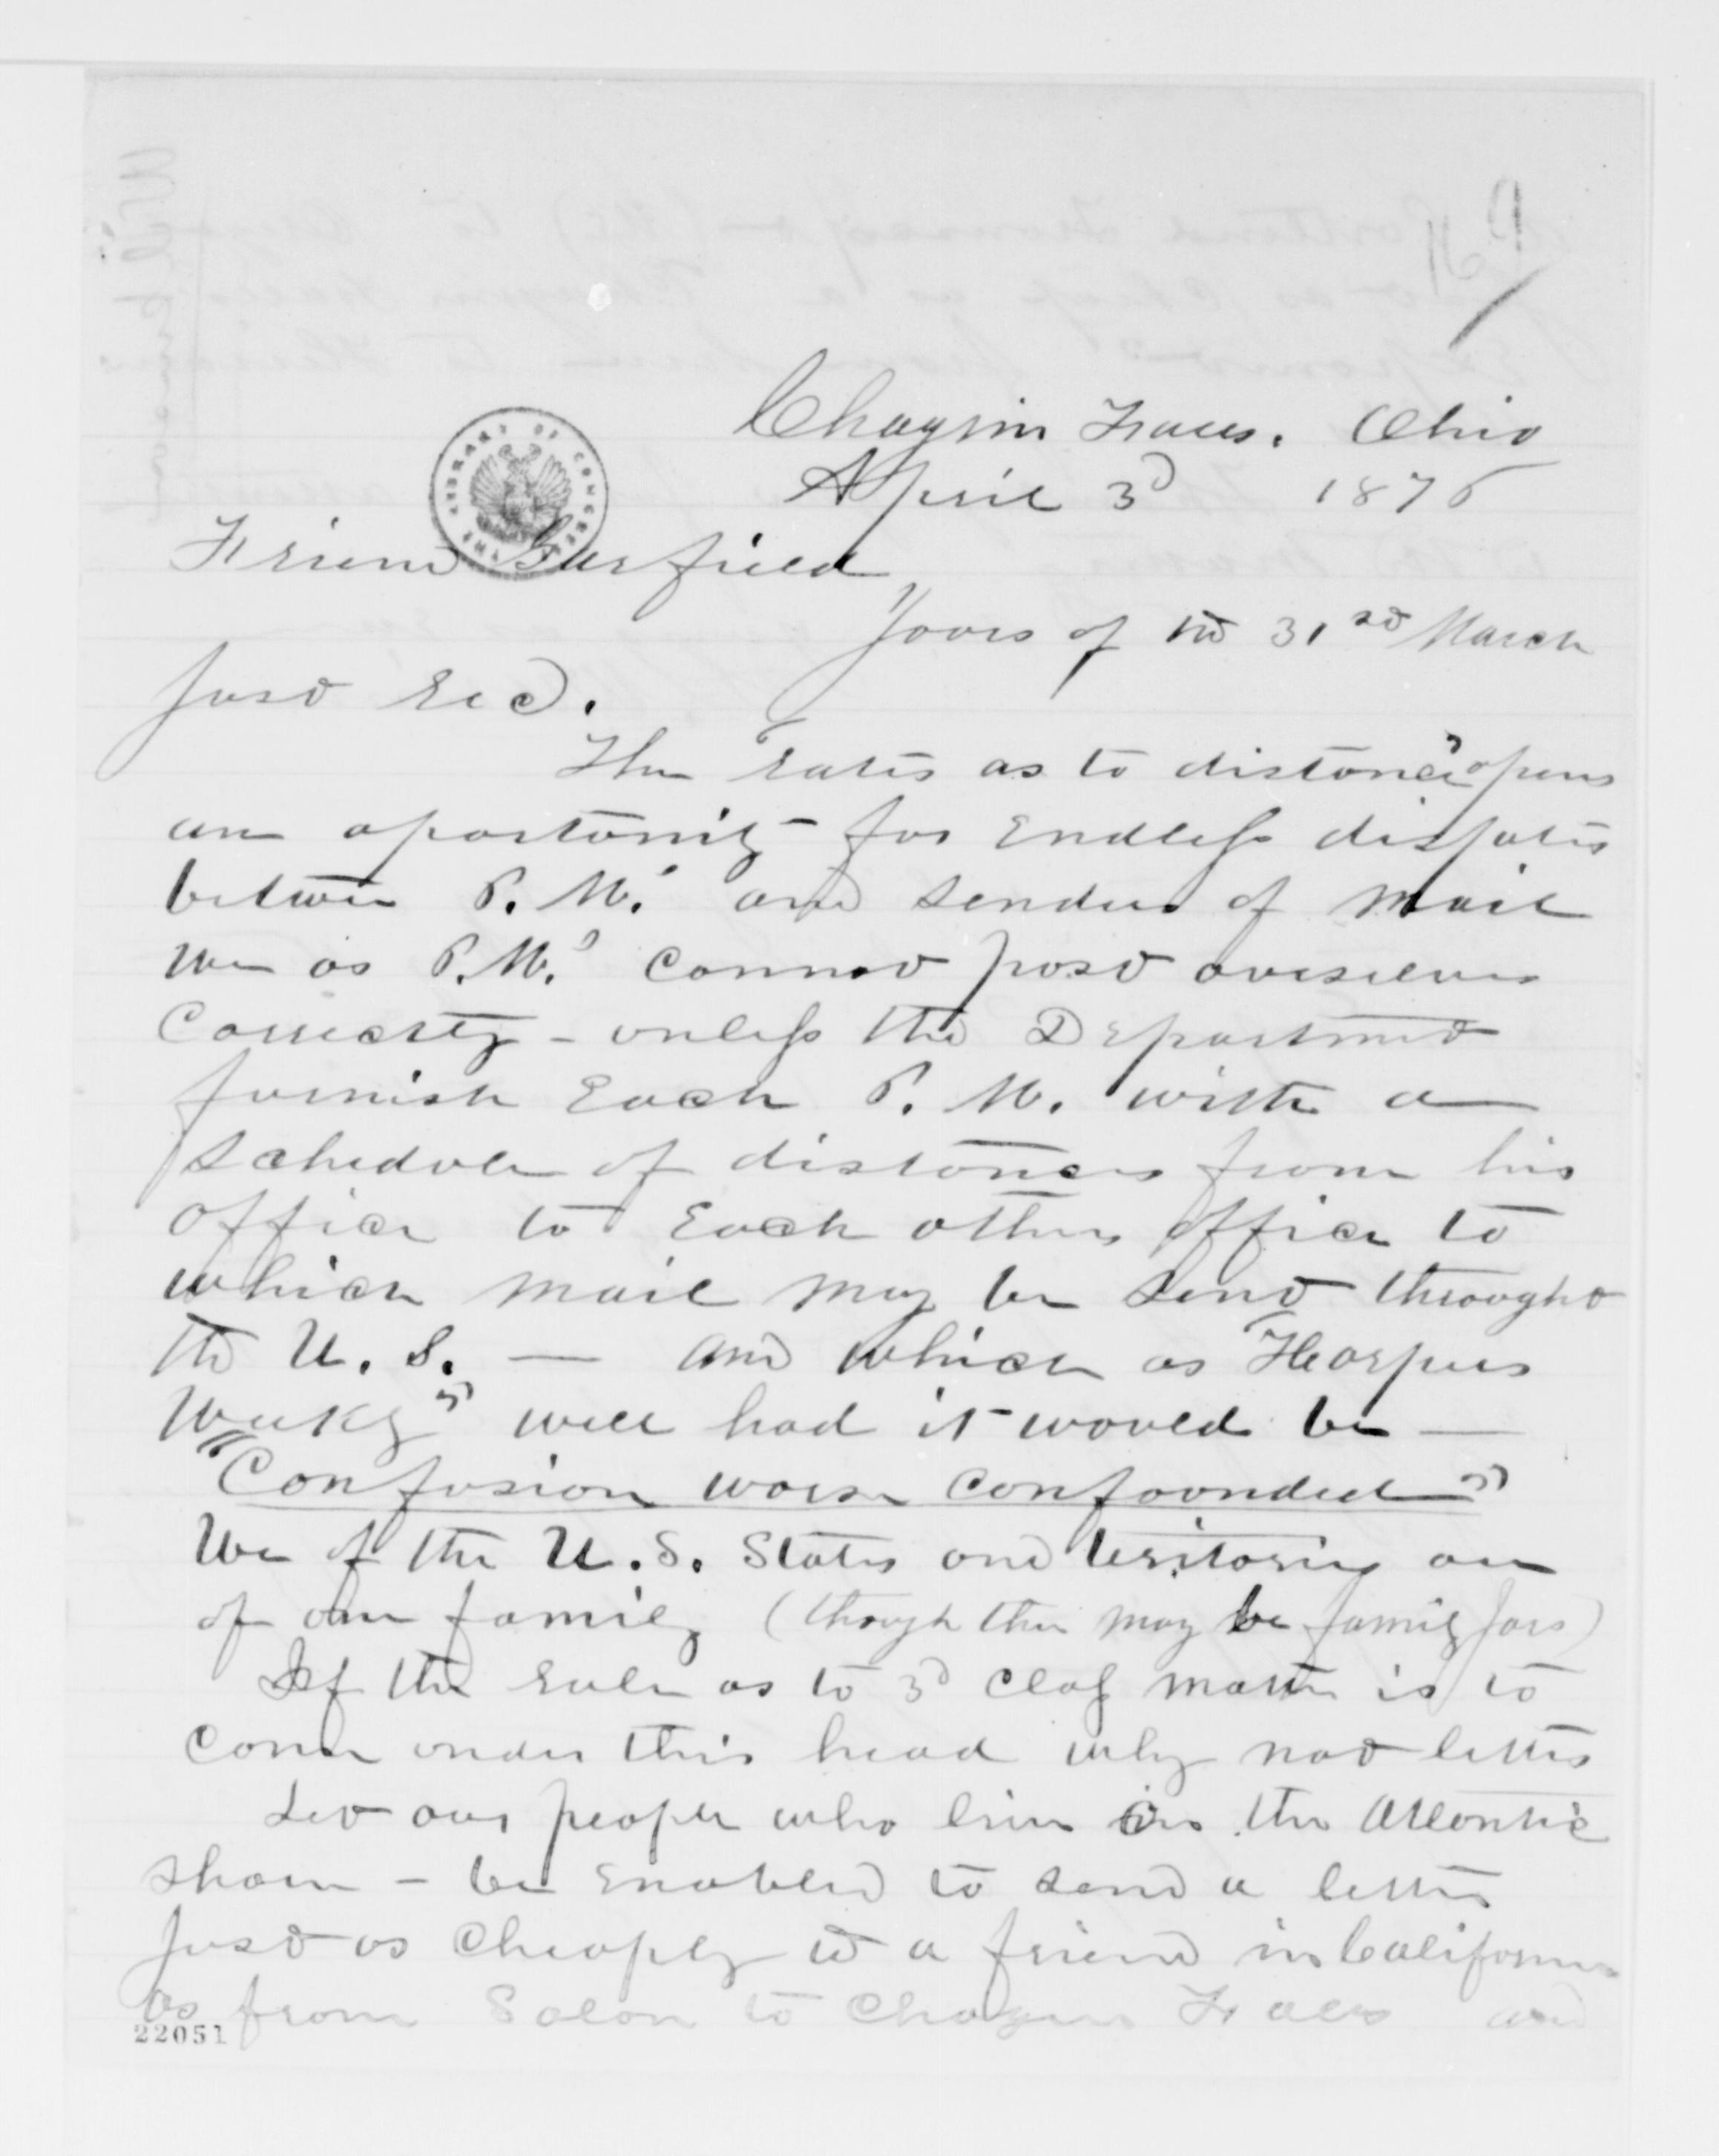 Chagrin Falls. Ohio
April 3d 1876
THE LIBRARY OF CONGRESS
Friend Garfield,
Yours of the 31st March
just Recd.
The "rates as to distance" opens
an oportunity for Endless disputes
between P.M.s and senders of mail
We as P.M.s cannot post ourselves
Correctly - unless the Department
furnish Each P.M. with a
schedule of distances from his
office to Each other office to
which mail may be sent throughout
the U.S. — and which as "Harpers
Weekly" well had it would be —
"Confusion worse confounded"
We of the U.S. States and teritories are
of one family (though there may be family jars)
If the rule as to 3d class matter is to
come under this head why not letters
Let our people who live on the Atlantic
shore - be enabled to send a letter
just as cheaply to a friend in California
as from Solon to Chagrin Falls and
22051